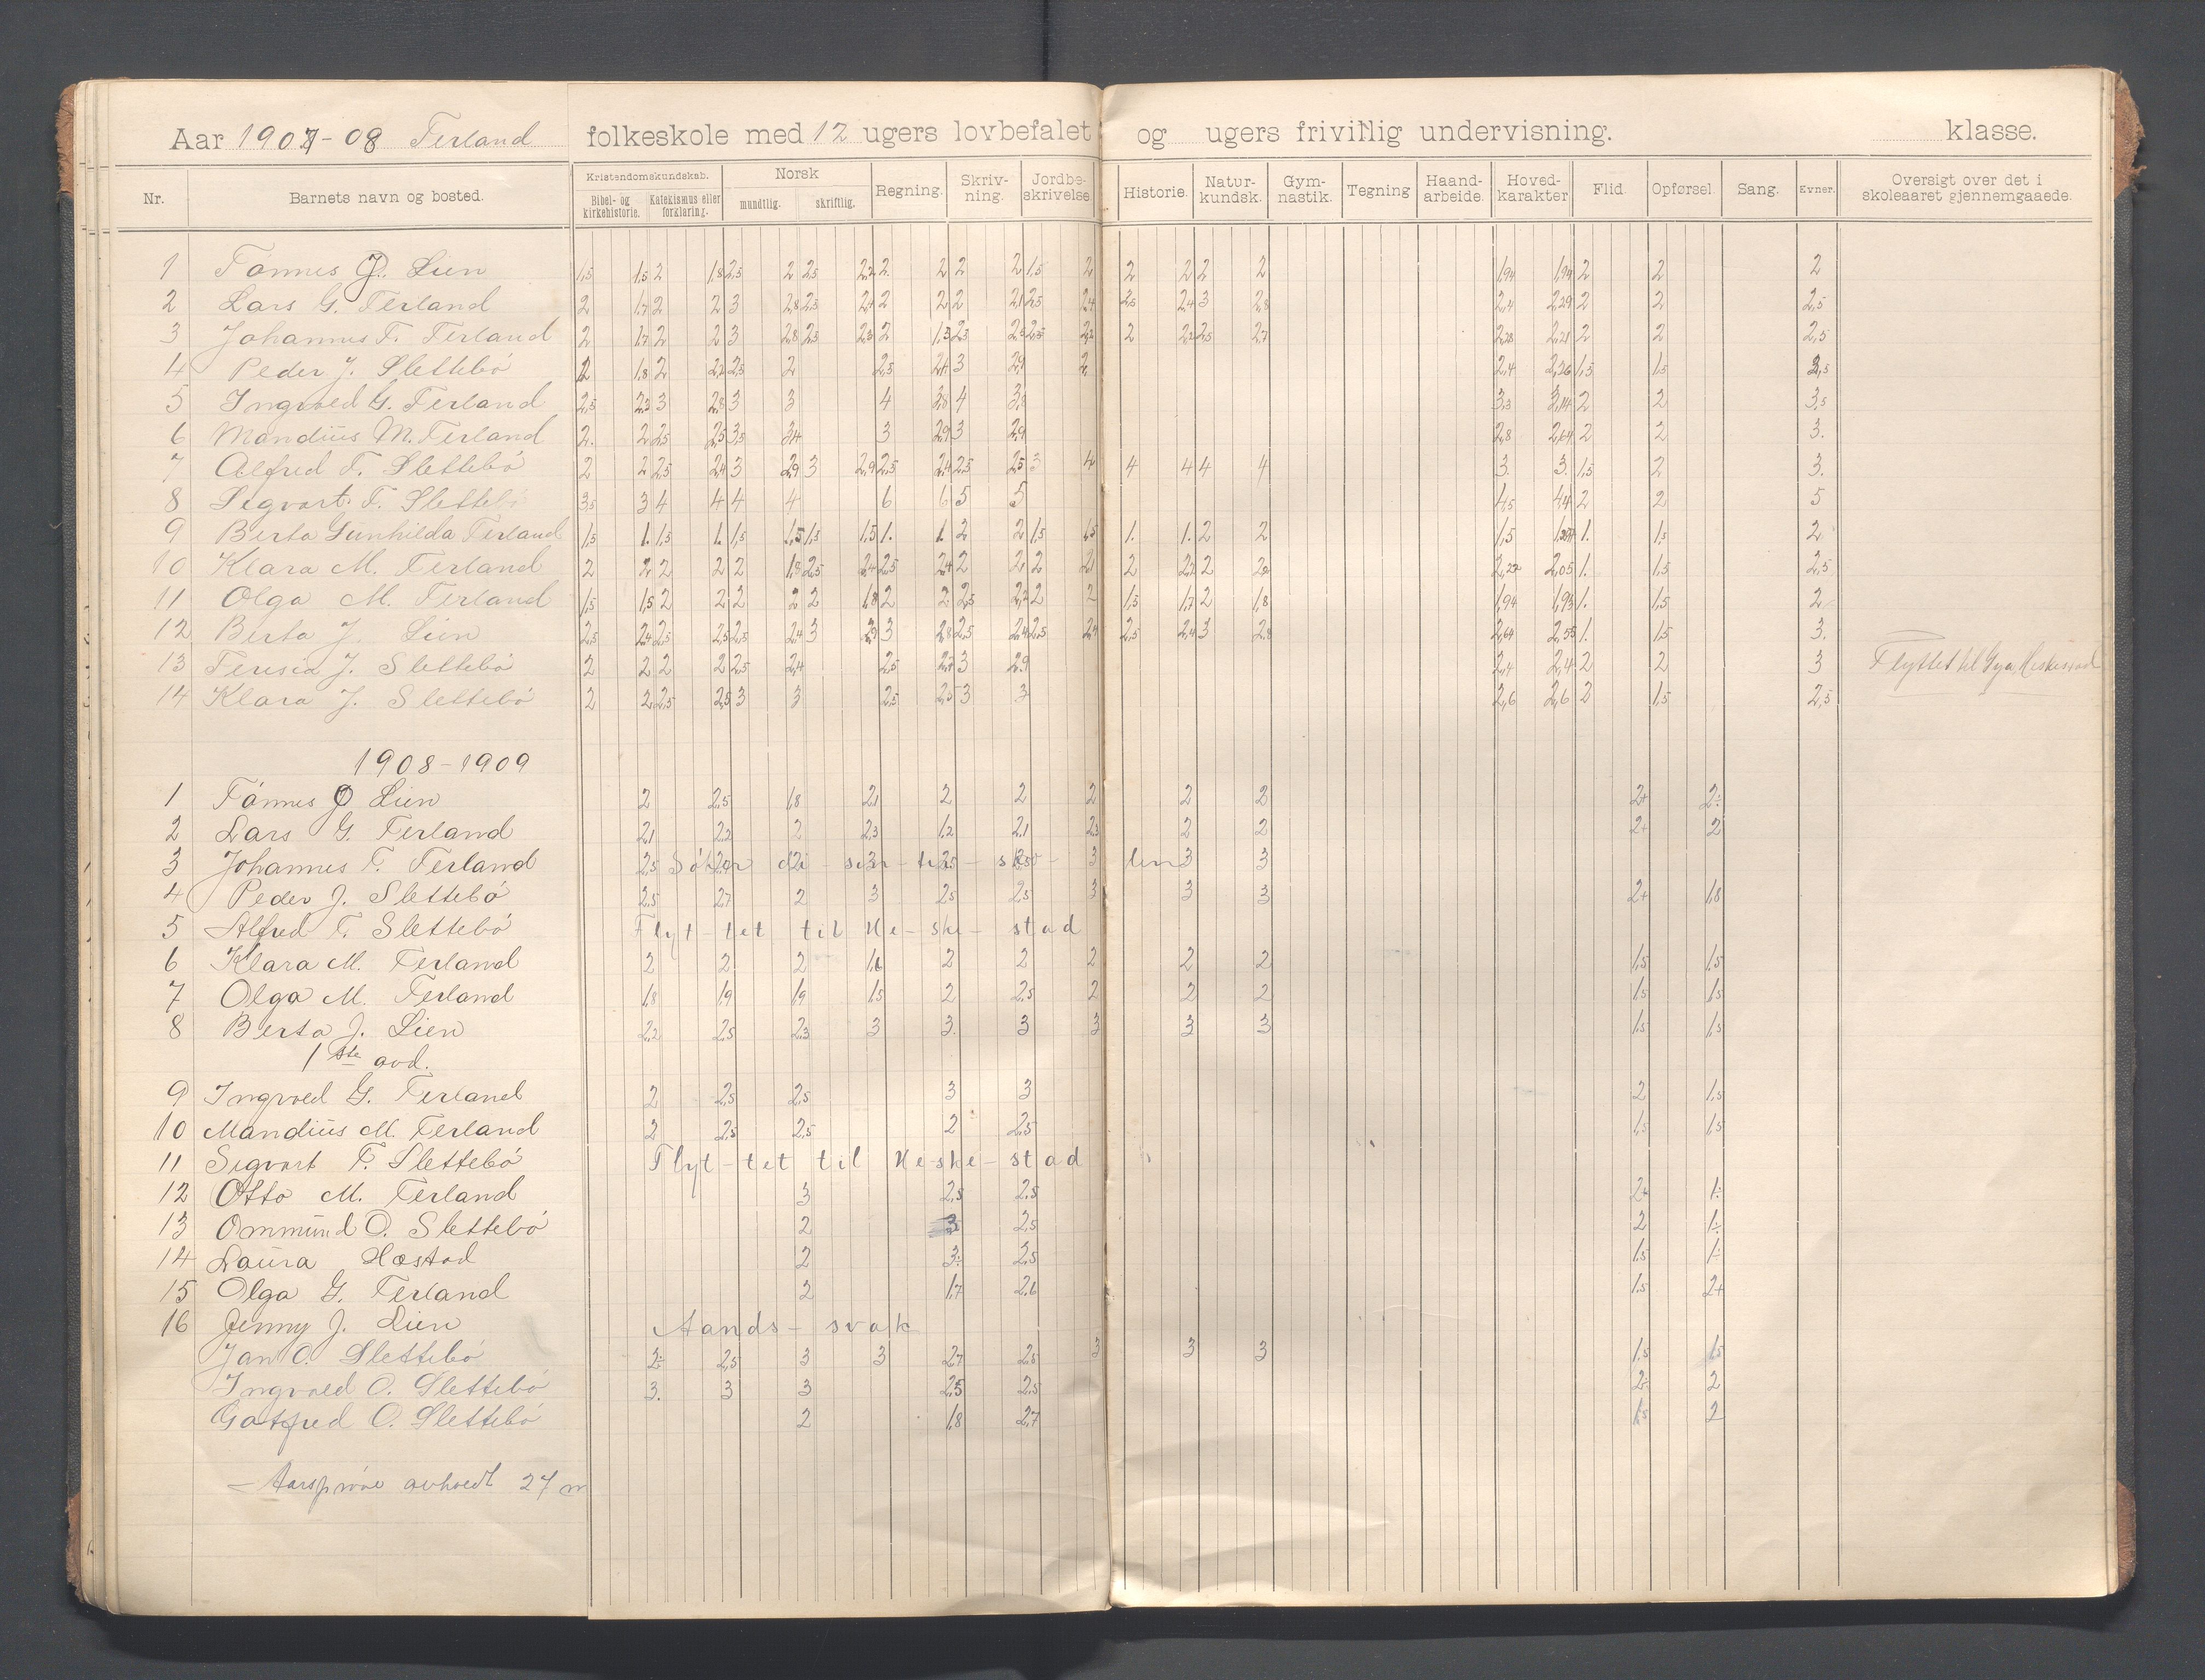 Aar 1907-08 Terland folkeskole med 12 ugers lovbefalet og ugers frivillig undervisning. klasse.
Nr. Barnets navn og bosted. Kristendomskundskab. Bibel- og kirkehistorie. Katekismus eller forklaring. Norsk mundtlig. skriftlig. Regning. Skriv-ning. Jordbe-skrivelse. Historie. Natur-kundsk. Gym-nastik. Tegning Haand-arbeide. Hoved-karakter Flid Opførsel. Sang. Evner. Oversigt over det i skoleaaret gjennemgaaede.
1 Tønnes J. Lien 1,5 1,5 2 1,8 2,5 2 2,5 2,2 2 2 2 2 1,5 2 2 2 2 2 1,94 1,94 2 2 2
2 Lars G. Terland 2 1,7 2 2 3 2,8 2,5 2,4 2 2 2 2,1 2,5 2,4 2,5 2,4 3 2,8 2,4 2,29 2 2 2,5
3 Johannes T. Terland 2 1,7 2 2 3 2,8 2,5 2,3 2 1,3 2,5 2,5 2,5 2,2 2 2,2 2,5 2,7 2,28 2,21 2 2 2,5
4 Peder J. Slettebø 2 1,8 2 2,2 2,5 2 2,5 2,4 3 2,9 2 2,4 2,26 1,5 1,5 2,5
5 Ingvald G. Terland 2,5 2,3 3 2,8 3 3 4 3,8 4 3,8 3,3 3,14 2 2 3,5
6 Mandius M. Terland 2. 2 2,5 2,5 3,5 3,4 3 2,9 3 2,9 2,8 2,64 2 2 3.
7 Alfred T. Slettebø 2 2 2,5 2,4 3 2,9 3 2,9 2,5 2,4 2,5 2,5 3 4 4 4 4 4 3. 3. 1,5 2 3.
8 Sigvart T. Slettebø 3,5 3 4 4 4 4 6 6 5 5 4,5 4,4 2 2 5
9 Berta Gunhilda Terland 1,5 1. 1,5 1. 1,5 1,5 1,5 1,5 1. 1. 2 2 1,5 1,5 1. 1. 2 2 1,5 1. 1,5 2
10 Klara M. Terland 2 2 2 2 2 1,8 2,5 2,4 2,5 2,4 2 2,1 2 2,1 2 2,2 2 2,2 2,22 2,05 1. 1,5 2,5
11 Olga M. Terland 1,5 1,5 2 2 2 2 2 1,8 2 2 2,5 2,2 2 2 1,5 1,7 2 1,8 1,94 1,93 1. 1,5 2
12 Berta J. Lien 2,5 2,4 2,5 2,5 2,5 2,4 3 2,9 3 2,8 2,5 2,4 2,5 2,4 2,5 2,4 3 2,8 2,64 2,55 1. 1,5 3.
13 Teresia J. Slettebø 2 2 2 2 2,5 2,4 2,5 2,4 3 2,9 2,4 2,4 2 2 3 Flyttet til Gya, Heskestad
14 Klara J. Slettebø 2 2 2,5 2,5 3 3 2,5 2,5 3 3 2,6 2,6 2 1,5 2,5
1908-1909
1 Tønnes J Lien 2 2,5 1,8 2,1 2 2 2 2 2 2+ 2÷
2 Lars G. Terland 2,1 2,2 2 2,3 1,2 2,1 2,3 2 2 2+ 2
3 Johannes T. Terland 2,5 3 3 3
4 Peder J. Slettebø 2,5 2,7 2 3 2,5 2,5 3 3 3 2+ 1,8
5 Alfred T. Slettebø Flyt-tet til He-ske-stad
6 Klara M. Terland 2 2 2 1,6 2 2 2 2 2 1,5 1,5
7 Olga M. Terland 1,8 1,9 1,9 1,5 2 2,5 2 2 2 1,5 1,5
8 Berta J. Lien 2,2 2,5 2,3 3 3. 3 3 3 3 1,5 1,5
1ste avd.
9 Ingvald G. Terland 2 2,5 2,5 3 3 2 1,5
10 Mandius M. Terland 2 2,5 2,5 2 2,5 1,5 1,5
11 Sigvart T. Slettebø Flyt-tet til He-ske-stad
12 Otto M. Terland 3 2,5 2,5 2+ 1÷
13 Ommund O. Slettebø 2 3 2,5 2 1÷
14 Laura Hæstad 2 3÷ 2,5 1,5 1÷
15 Olga G. Terland 2 1,7 2,6 1,5 2+
16 Jenny J. Lien Aands-svak
Jan O. Slettebø 2÷ 2,5 3 3 2,7 2,8 3 3 3 1,5 1,5
Ingvald O. Slettebø 3. 3 3 2,5 2,5 2÷ 2
Gotfred O. Slettebø 2 1,8 2,7 1,5 2
- Aarsprøve avholdt 27 m